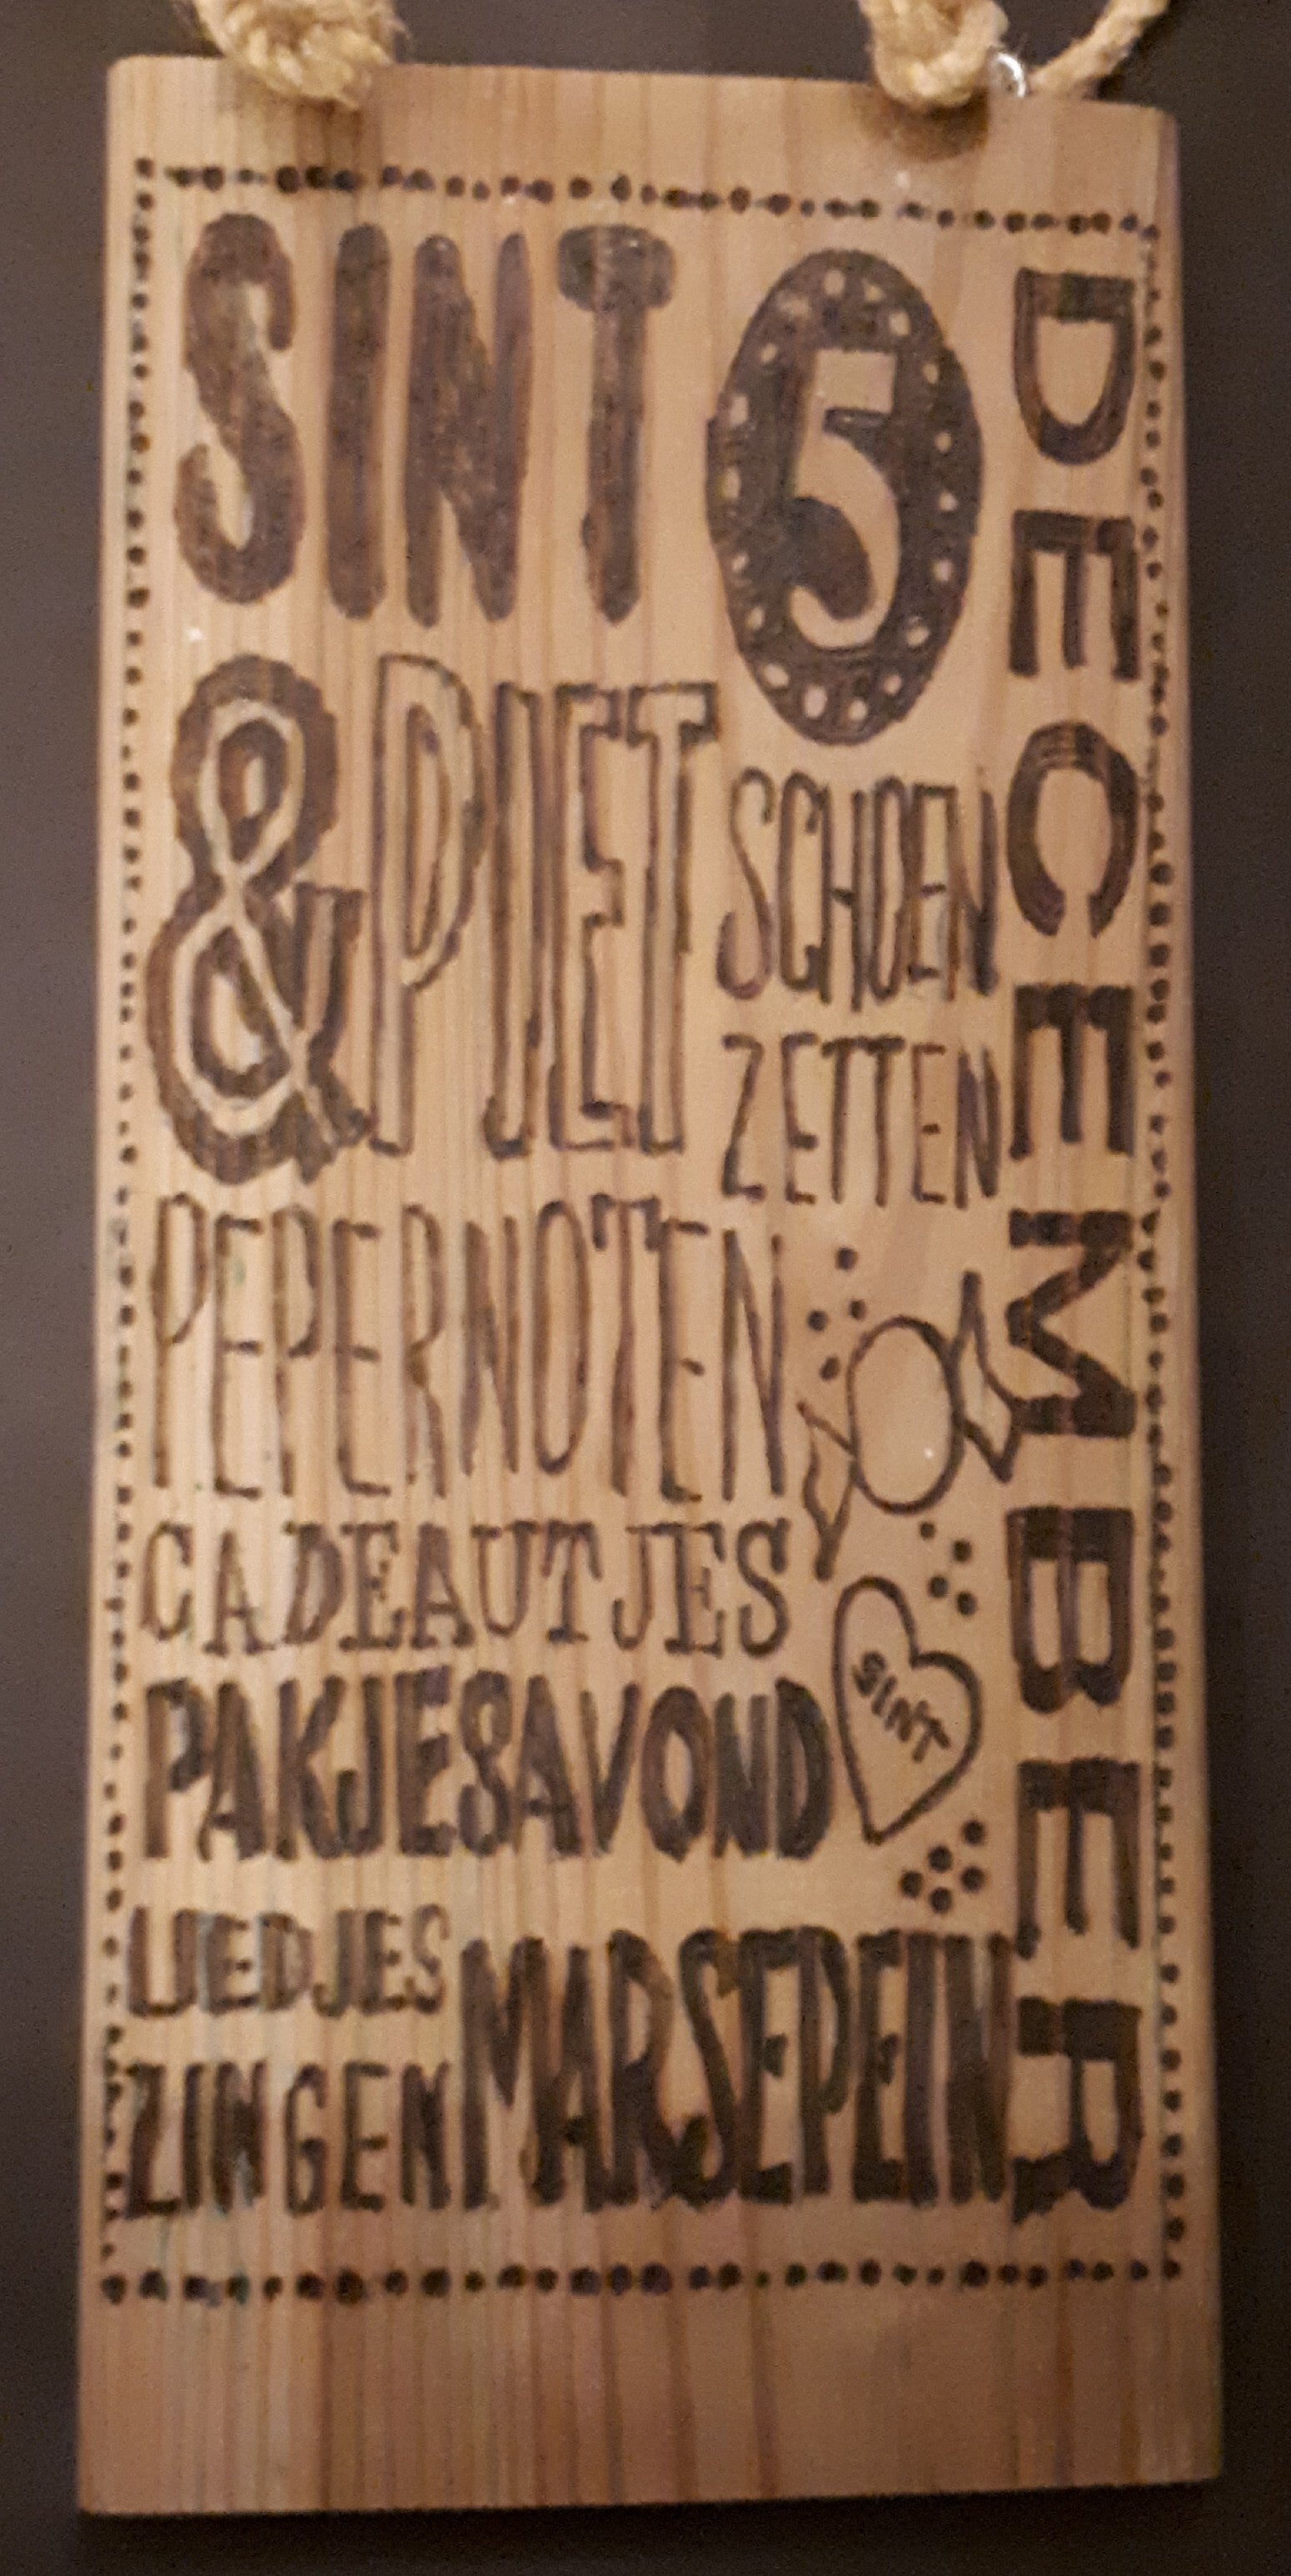 SINT
5
DECEMBER
& PIET
SCHOEN
ZETTEN
PEPERNOTEN
CADEAUTJES
PAKJESAVOND
SINT
LIEDJES
ZINGEN
MARSEPEIN